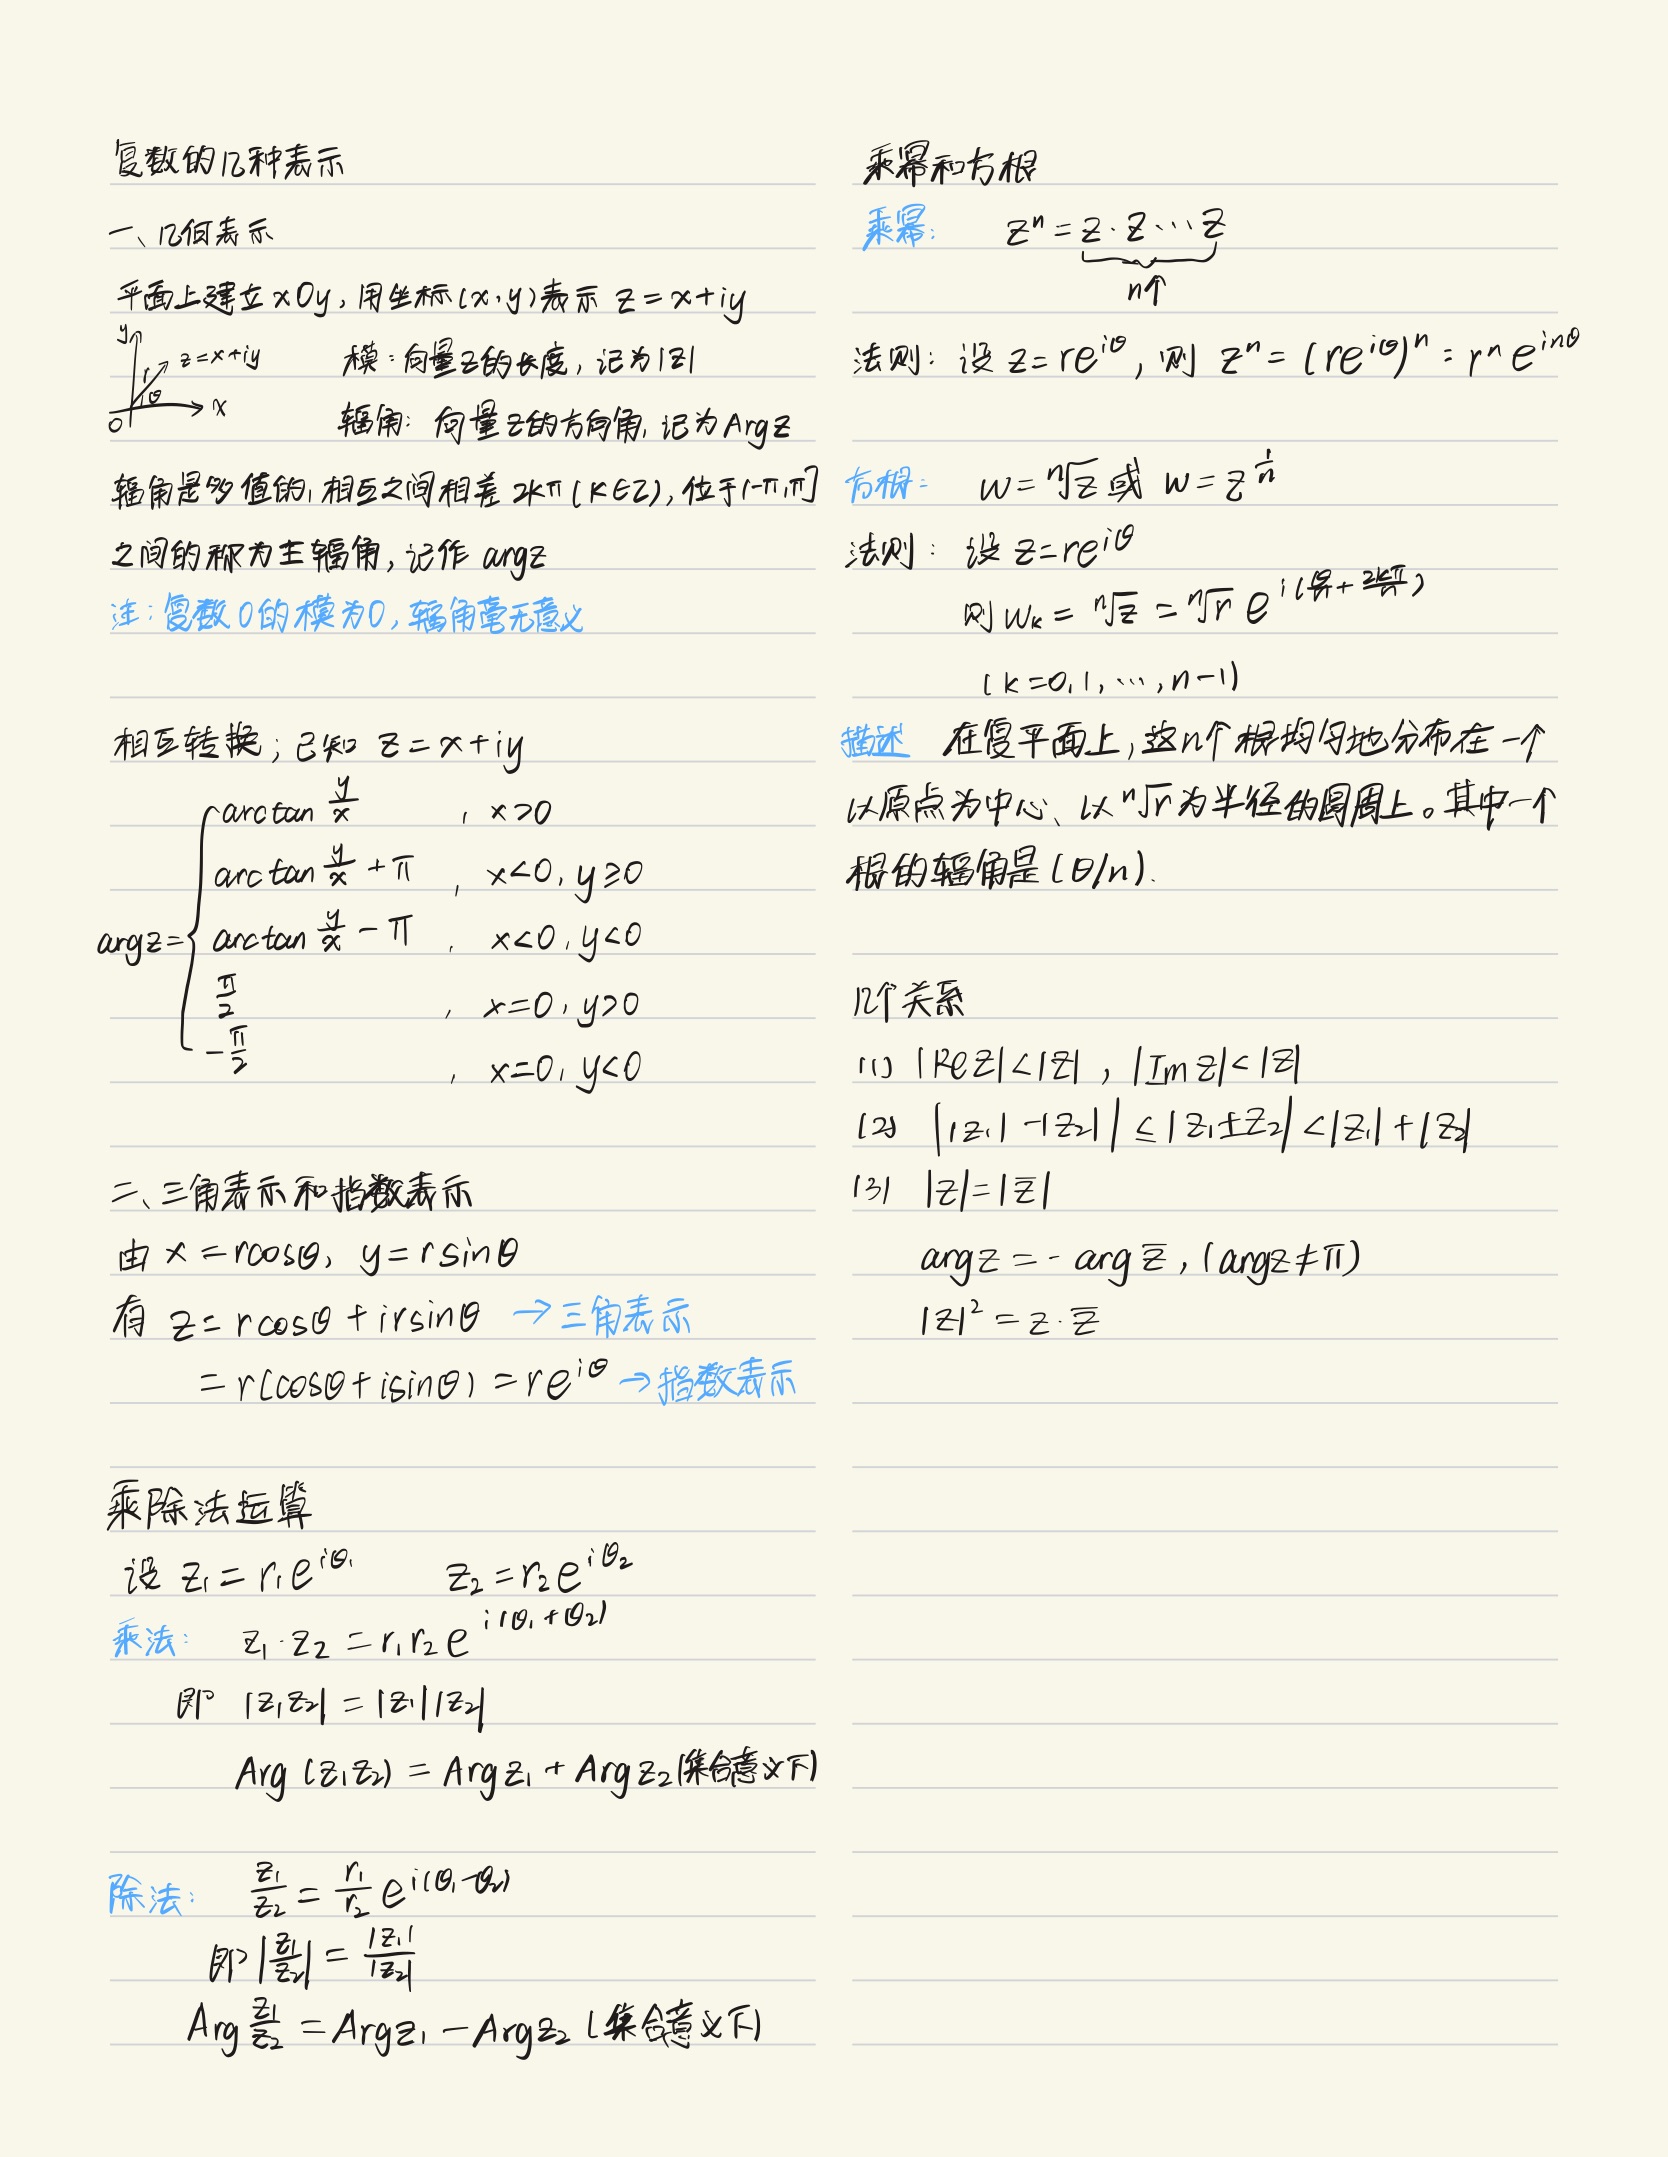 复数的几种表示
一、几何表示
平面上建立xOy,用坐标(x,y)表示 z=x+iy
y
z=x+iy
r
θ
x
O
模:向量z的长度,记为|z|
辐角:向量z的方向角,记为Argz
辐角是多值的,相互之间相差2kπ(k∈Z),位于(-π,π]
之间的称为主辐角,记作 argz
注:复数0的模为0,辐角毫无意义
相互转换;已知 z=x+iy
argz= { arctan y/x , x>0
arctan y/x +π , x<0,y≥0
arctan y/x -π , x<0,y<0
π/2 , x=0,y>0
-π/2 , x=0,y<0
二、三角表示和指数表示
由 x=rcosθ, y=rsinθ
有 z=rcosθ+irsinθ →三角表示
=r(cosθ+isinθ)=re^{iθ} →指数表示
乘除法运算
设 z₁=r₁e^{iθ₁} z₂=r₂e^{iθ₂}
乘法: z₁·z₂=r₁r₂e^{i(θ₁+θ₂)}
即 |z₁z₂|=|z₁||z₂|
Arg(z₁z₂)=Argz₁+Argz₂(集合意义下)
除法: z₁/z₂=r₁/r₂ e^{i(θ₁-θ₂)}
即|z₁/z₂|=|z₁|/|z₂|
Arg z₁/z₂=Argz₁-Argz₂(集合意义下)
乘幂和方根
乘幂: zⁿ=z·z···z
n个
法则:设 z=re^{iθ},则 zⁿ=(re^{iθ})ⁿ=rⁿe^{inθ}
方根: w=ⁿ√z 或 w=z^{1/n}
法则:设 z=re^{iθ}
则 w_k=ⁿ√z=ⁿ√r e^{i(θ/n+2kπ/n)}
(k=0,1,…,n-1)
描述 在复平面上,这n个根均匀地分布在一个
以原点为中心、以ⁿ√r为半径的圆周上。其中一个
根的辐角是(θ/n).
几个关系
(1) |Rez|<|z| , |Imz|<|z|
(2) ||z₁|-|z₂||≤|z₁±z₂|<|z₁|+|z₂|
(3) |z|=|z̅|
argz=-argz̅,(argz≠π)
|z|²=z·z̅